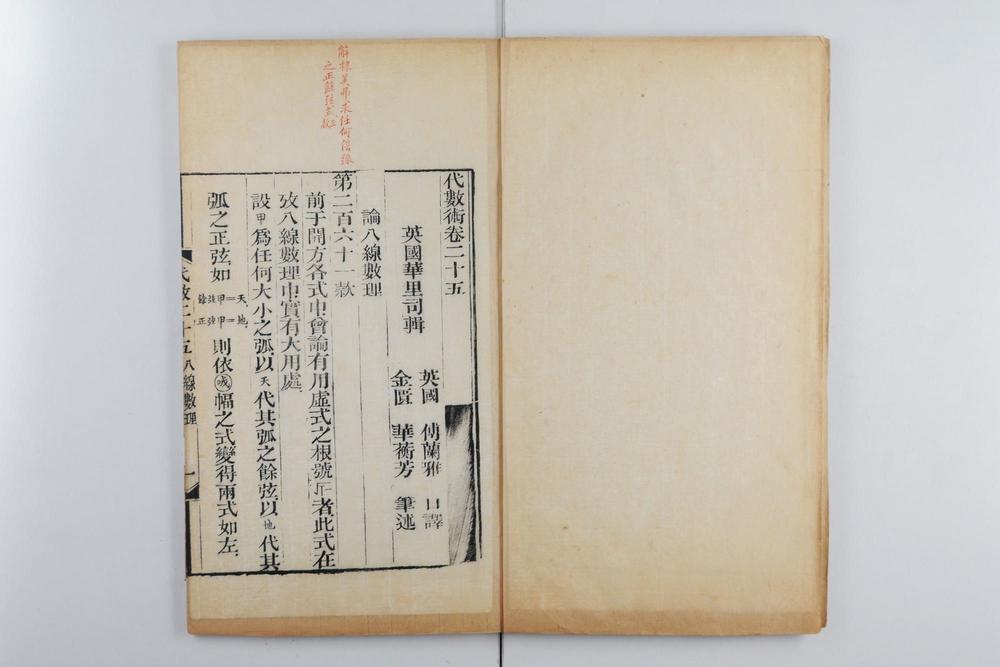 解棣美弗求任何倍弧
之正餘弦
代數術卷二十五
英國華里司輯
英國 傅蘭雅 口譯
金匱 華蘅芳 筆述
論八線數理
第二百六十一款
前于開方各式中曾論有用虛式之根號者此式在
攷八線數理中實有大用處
設甲爲任何大小之弧以天代其弧之餘弦以地代其
弧之正弦如
餘弦甲=天
正弦甲=地
則依幅之式變得兩式如左
代數二十五 八線數理 一